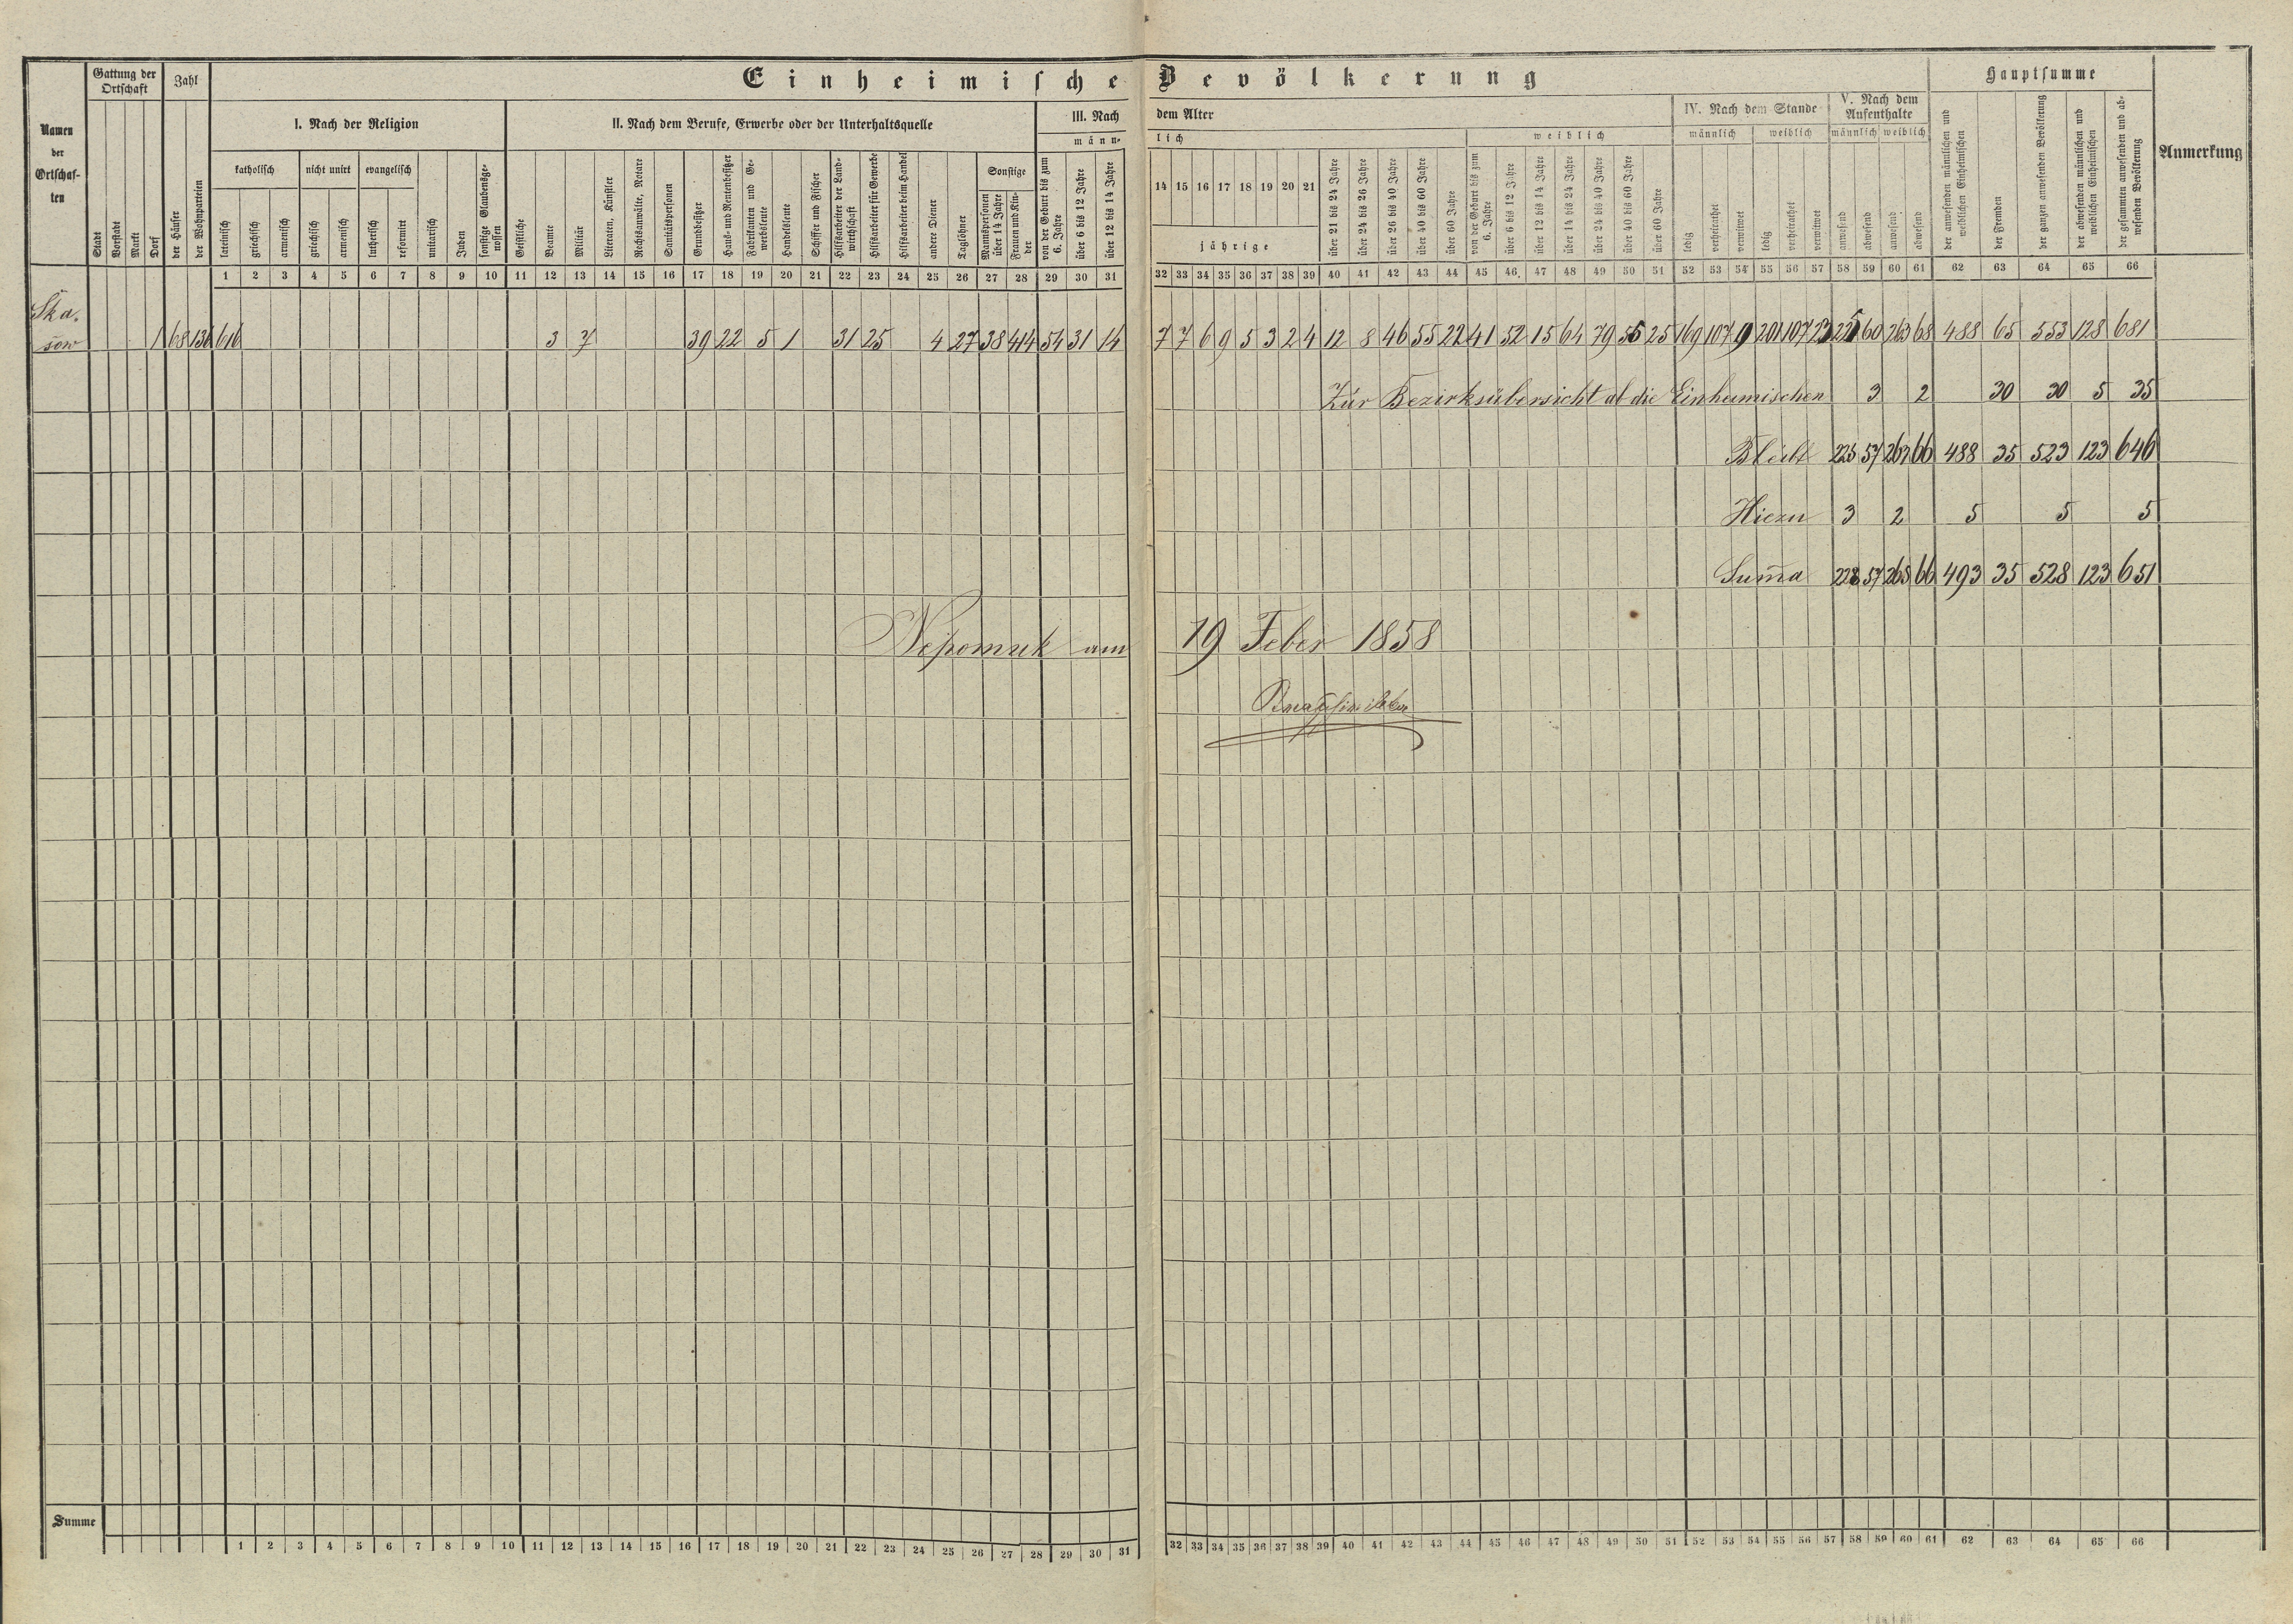 Einheimische Bevölkerung
Namen der Ortschaf- ten
Gattung der Ortschaft
Zahl
Hauptsumme
Anmerkung
I. Nach der Religion
II. Nach dem Berufe, Erwerbe oder der Unterhaltsquelle
III. Nach dem Alter
IV. Nach dem Stande
V. Nach dem Aufenthalte
männ- lich
weiblich
männlich weiblich männlich weiblich
katholisch nicht unirt evangelisch
Sonstige
Stadt
Vorstadt
Markt
Dorf
der Häuser
der Wohnparteien
lateinisch
griechisch
armenisch
griechisch
armenisch
lutherisch
reformirt
unitarisch
Juden
sonstige Glaubensge- nossen
Geistliche
Beamte
Militär
Literaten, Künstler
Rechtsanwälte, Notare
Sanitätspersonen
Grundbesitzer
Haus- und Rentenbesitzer
Fabrikanten und Ge- werbsleute
Handelsleute
Schiffer und Fischer
Hilfsarbeiter der Land- wirthschaft
Hilfsarbeiter für Gewerbe
Hilfsarbeiter beim Handel
andere Diener
Taglöhner
Mannspersonen über 14 Jahre
Frauen und Kin- der
von der Geburt bis zum 6. Jahre
über 6 bis 12 Jahre
über 12 bis 14 Jahre
14 15 16 17 18 19 20 21
jährige
über 21 bis 24 Jahre
über 24 bis 26 Jahre
über 26 bis 40 Jahre
über 40 bis 60 Jahre
über 60 Jahre
von der Geburt bis zum 6. Jahre
über 6 bis 12 Jahre
über 12 bis 14 Jahre
über 14 bis 24 Jahre
über 24 bis 40 Jahre
über 40 bis 60 Jahre
über 60 Jahre
ledig
verheirathet
verwitwet
ledig
verheirathet
verwitwet
anwesend
abwesend
anwesend
abwesend
der anwesenden männlichen und weiblichen Einheimischen
der Fremden
der ganzen anwesenden Bevölkerung
der abwesenden männlichen und weiblichen Einheimischen
der gesammten anwesenden und ab- wesenden Bevölkerung
1 2 3 4 5 6 7 8 9 10 11 12 13 14 15 16 17 18 19 20 21 22 23 24 25 26 27 28 29 30 31 32 33 34 35 36 37 38 39 40 41 42 43 44 45 46 47 48 49 50 51 52 53 54 55 56 57 58 59 60 61 62 63 64 65 66
Ska.
šow 1 68 136 616 3 7 39 22 5 1 31 25 4 27 38 414 54 31 14 7 7 6 9 5 3 2 4 12 8 46 55 22 41 52 15 64 79 56 25 169 107 9 201 107 23 225 60 263 68 488 65 553 128 681
Zur Bezirksübersicht ab die Einheimischen 3 2 30 30 5 35
Bleibt 225 57 263 66 488 35 523 123 646
Hiezu 3 2 5 5 5
Summa 228 57 265 66 493 35 528 123 651
Nepomuk am 19 Feber 1858
Summe
1 2 3 4 5 6 7 8 9 10 11 12 13 14 15 16 17 18 19 20 21 22 23 24 25 26 27 28 29 30 31 32 33 34 35 36 37 38 39 40 41 42 43 44 45 46 47 48 49 50 51 52 53 54 55 56 57 58 59 60 61 62 63 64 65 66